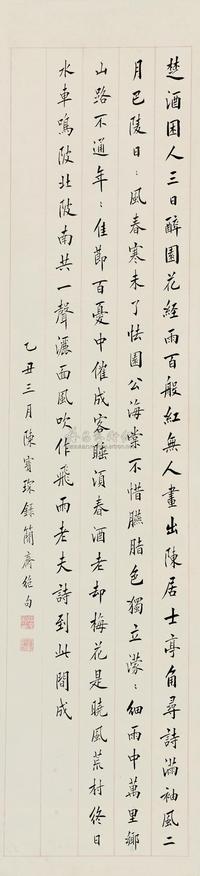 楚酒困人三日醉園花經雨百般紅無人畫出陳居士亭角尋詩滿袖風二
月巴陵日:風春寒未了怯園公海棠不惜臙脂色獨立濛:細雨中萬里鄉
山路不通年:佳節百憂中催成客睡須春酒老却梅花是曉風荒村終日
水車鳴陂北陂南共一聲灑面風吹作飛雨老夫詩到此間成
乙丑三月陳寶琛錄簡齋絕句